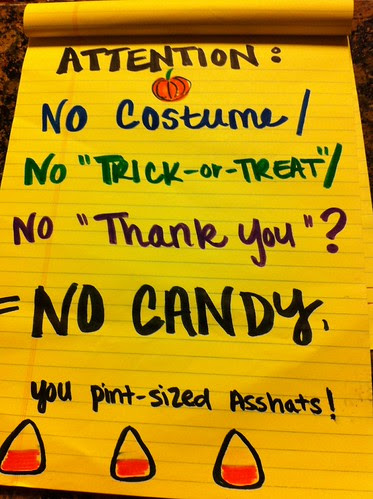 ATTENTION:
No Costume/
No "TRICK-or-TREAT"/
No "Thank you"?
= NO CANDY,
you pint-sized Asshats!